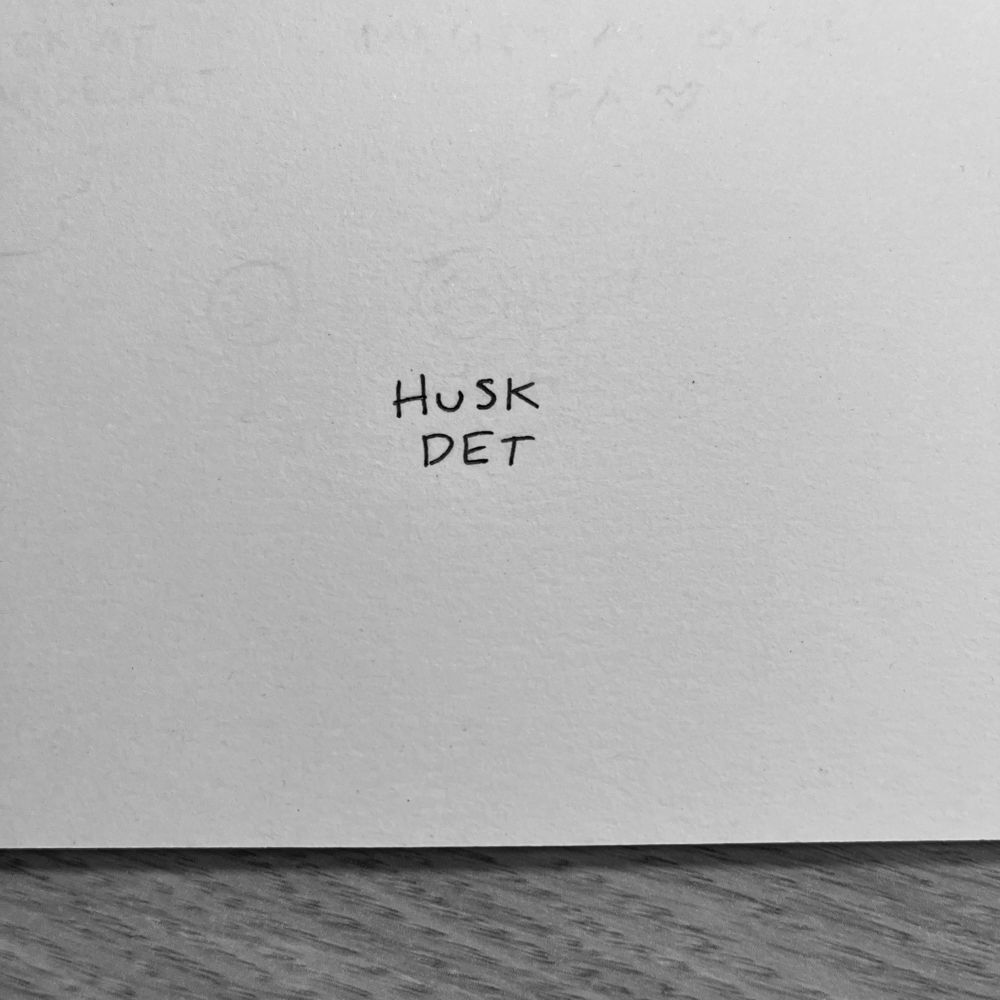 HUSK
DET